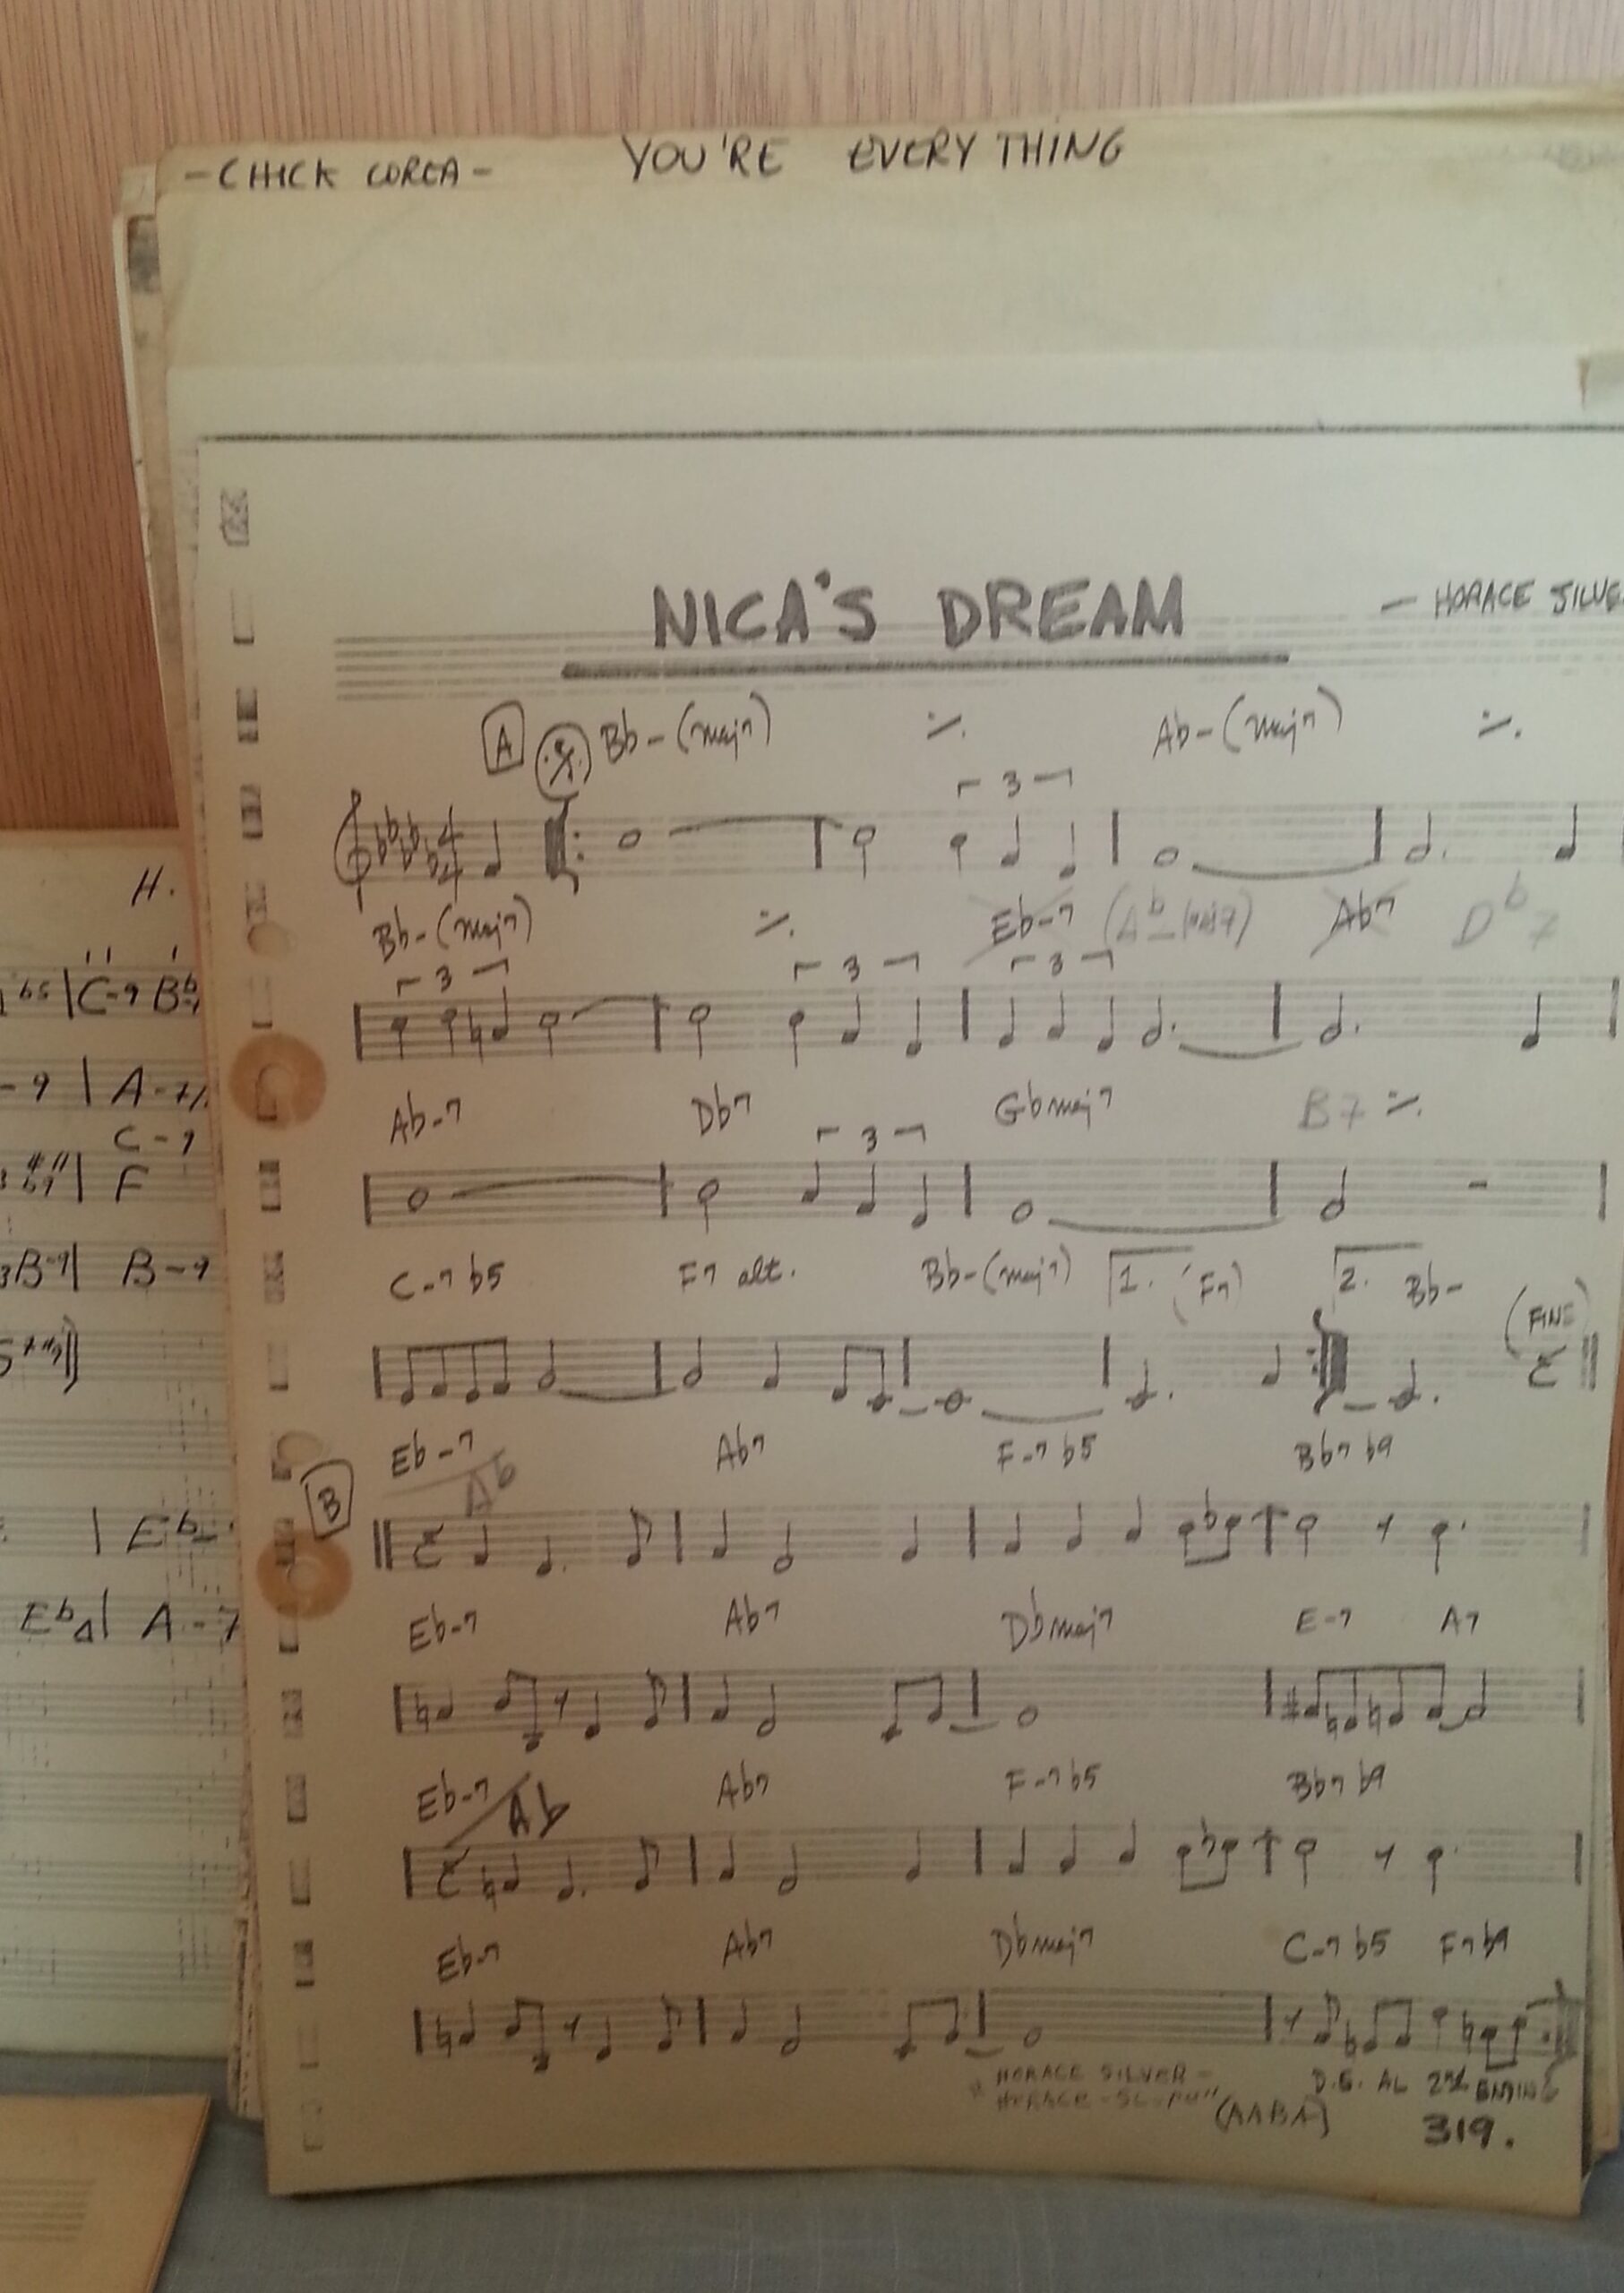 - CHICK COREA - YOU'RE EVERYTHING
NICA'S DREAM
— HORACE SILVE
A Bb-(maj7) ٪ Ab-(maj7) ٪
4
4
3
Bb-(maj7) ٪ Eb-7 (Ab-maj7) Ab7 Db7
3 3 3
Ab-7 Db7 Gbmaj7 B7 ٪
3
C-7b5 F7 alt. Bb-(maj7) 1. (F7) 2. Bb- (FINE)
B Eb-7/Ab Ab7 F-7b5 Bb7b9
Eb-7 Ab7 Dbmaj7 E-7 A7
Eb-7/Ab Ab7 F-7b5 Bb7b9
Eb-7 Ab7 Dbmaj7 C-7b5 F7b9
HORACE SILVER -
D.S. AL 2nd ENDING
(AABA)
319.
H.
b5 | C-9 Bb
-9 | A-7
C-9
F
B-9 | B-9
| Eb-
Eb△ | A-7